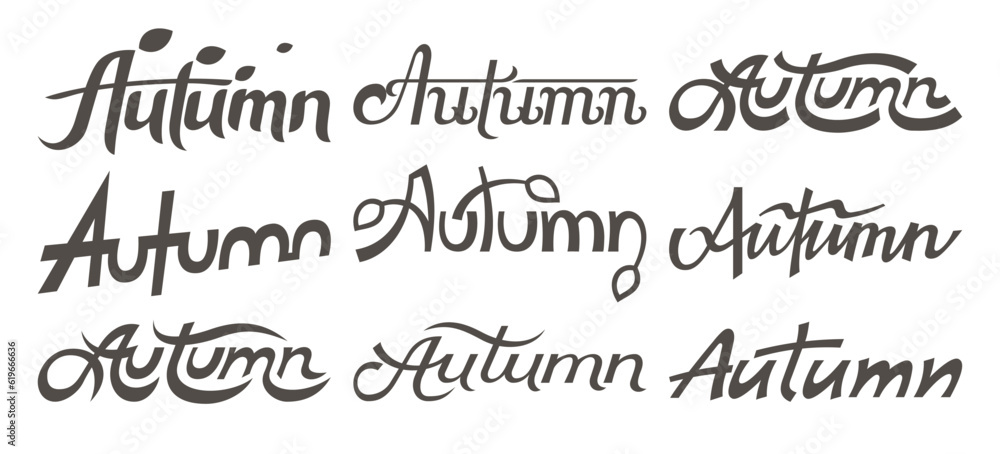 Autumn Autumn Autumn
Autumn Autumn Autumn
Autumn Autumn Autumn
Adobe Stock | #619666636